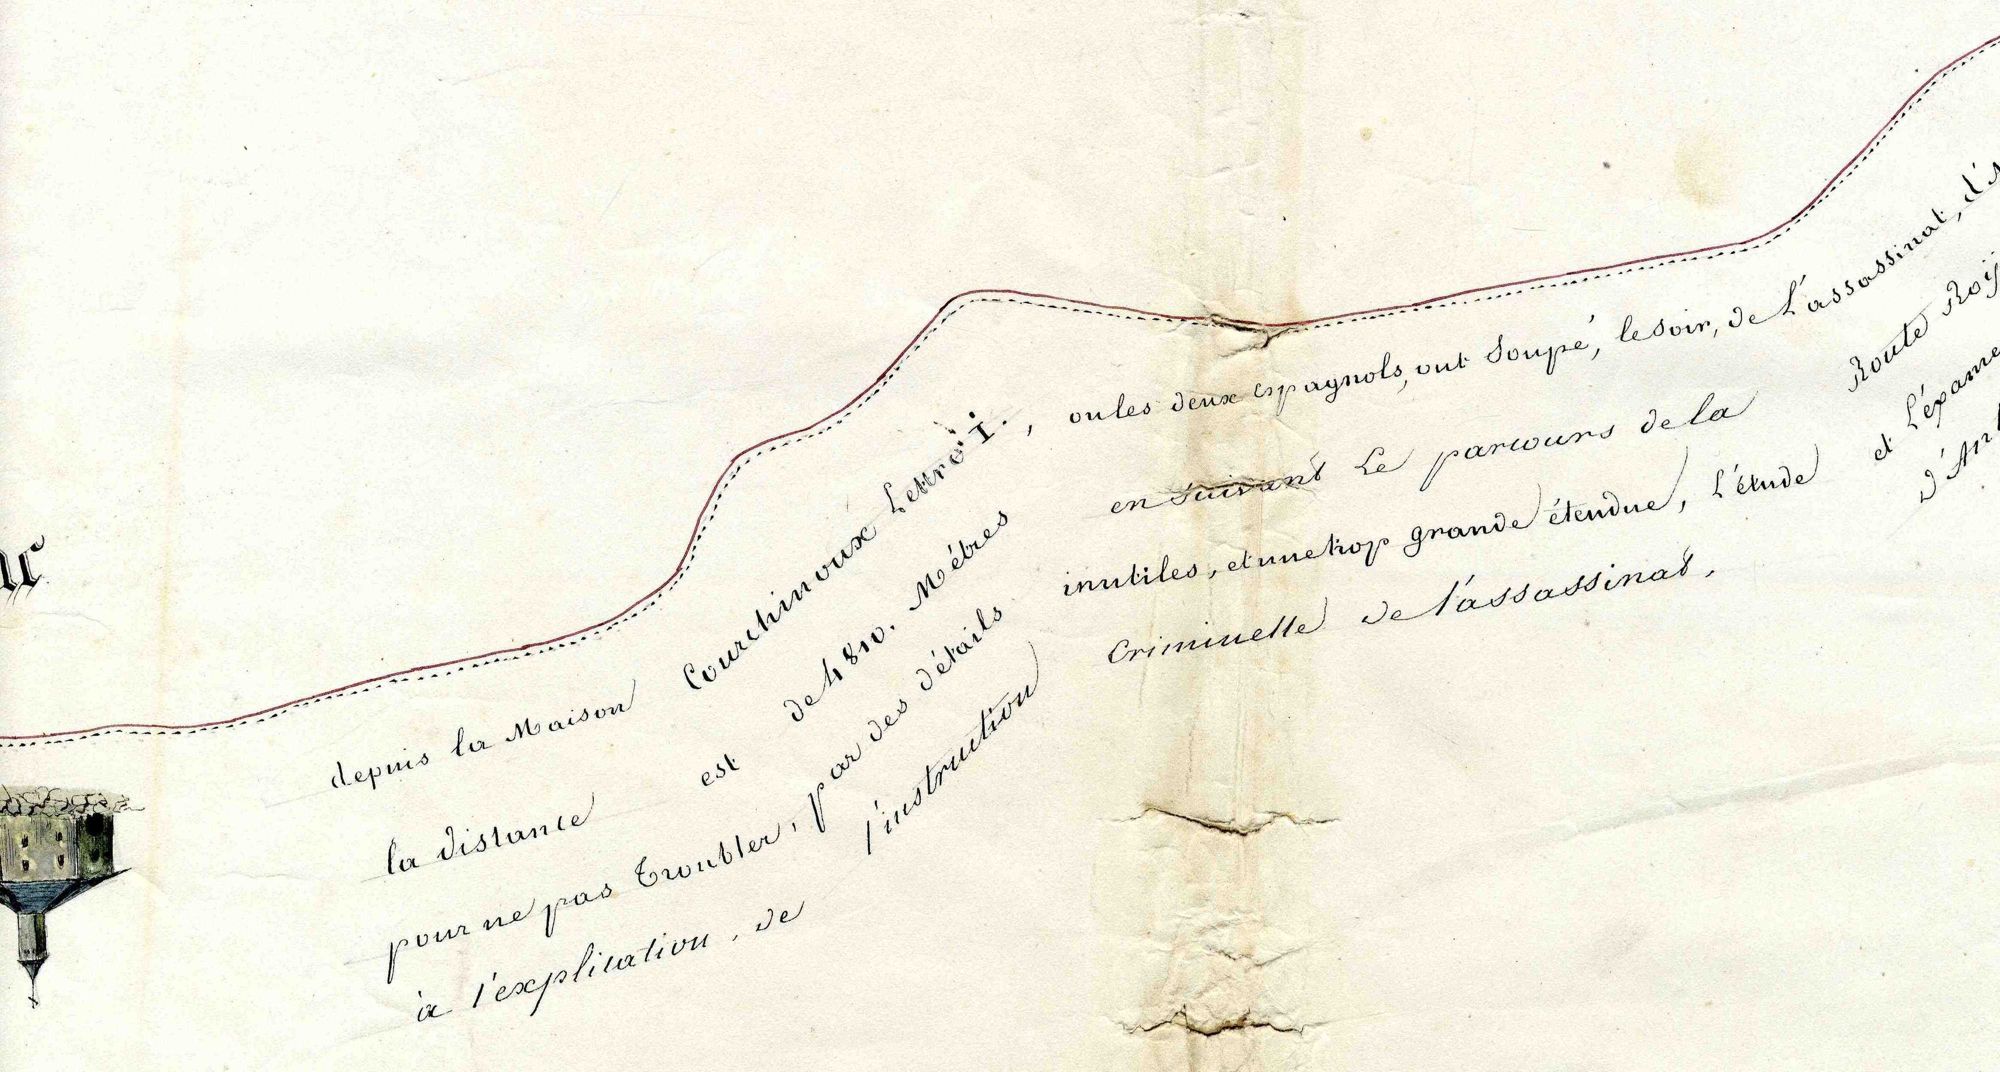 depuis la Maison Courchinoux Lettre I. , ou les deux espagnols, ont Soupé, le Soir, de L'assassinat,
la distance est de 4810. Métres en Suivant Le parcours de la Route
pour ne pas Troubler, par des détails inutiles, et une trop grande étendue, L'étude et
à l'explication, de l'instruction Criminelle de l'assassinat,